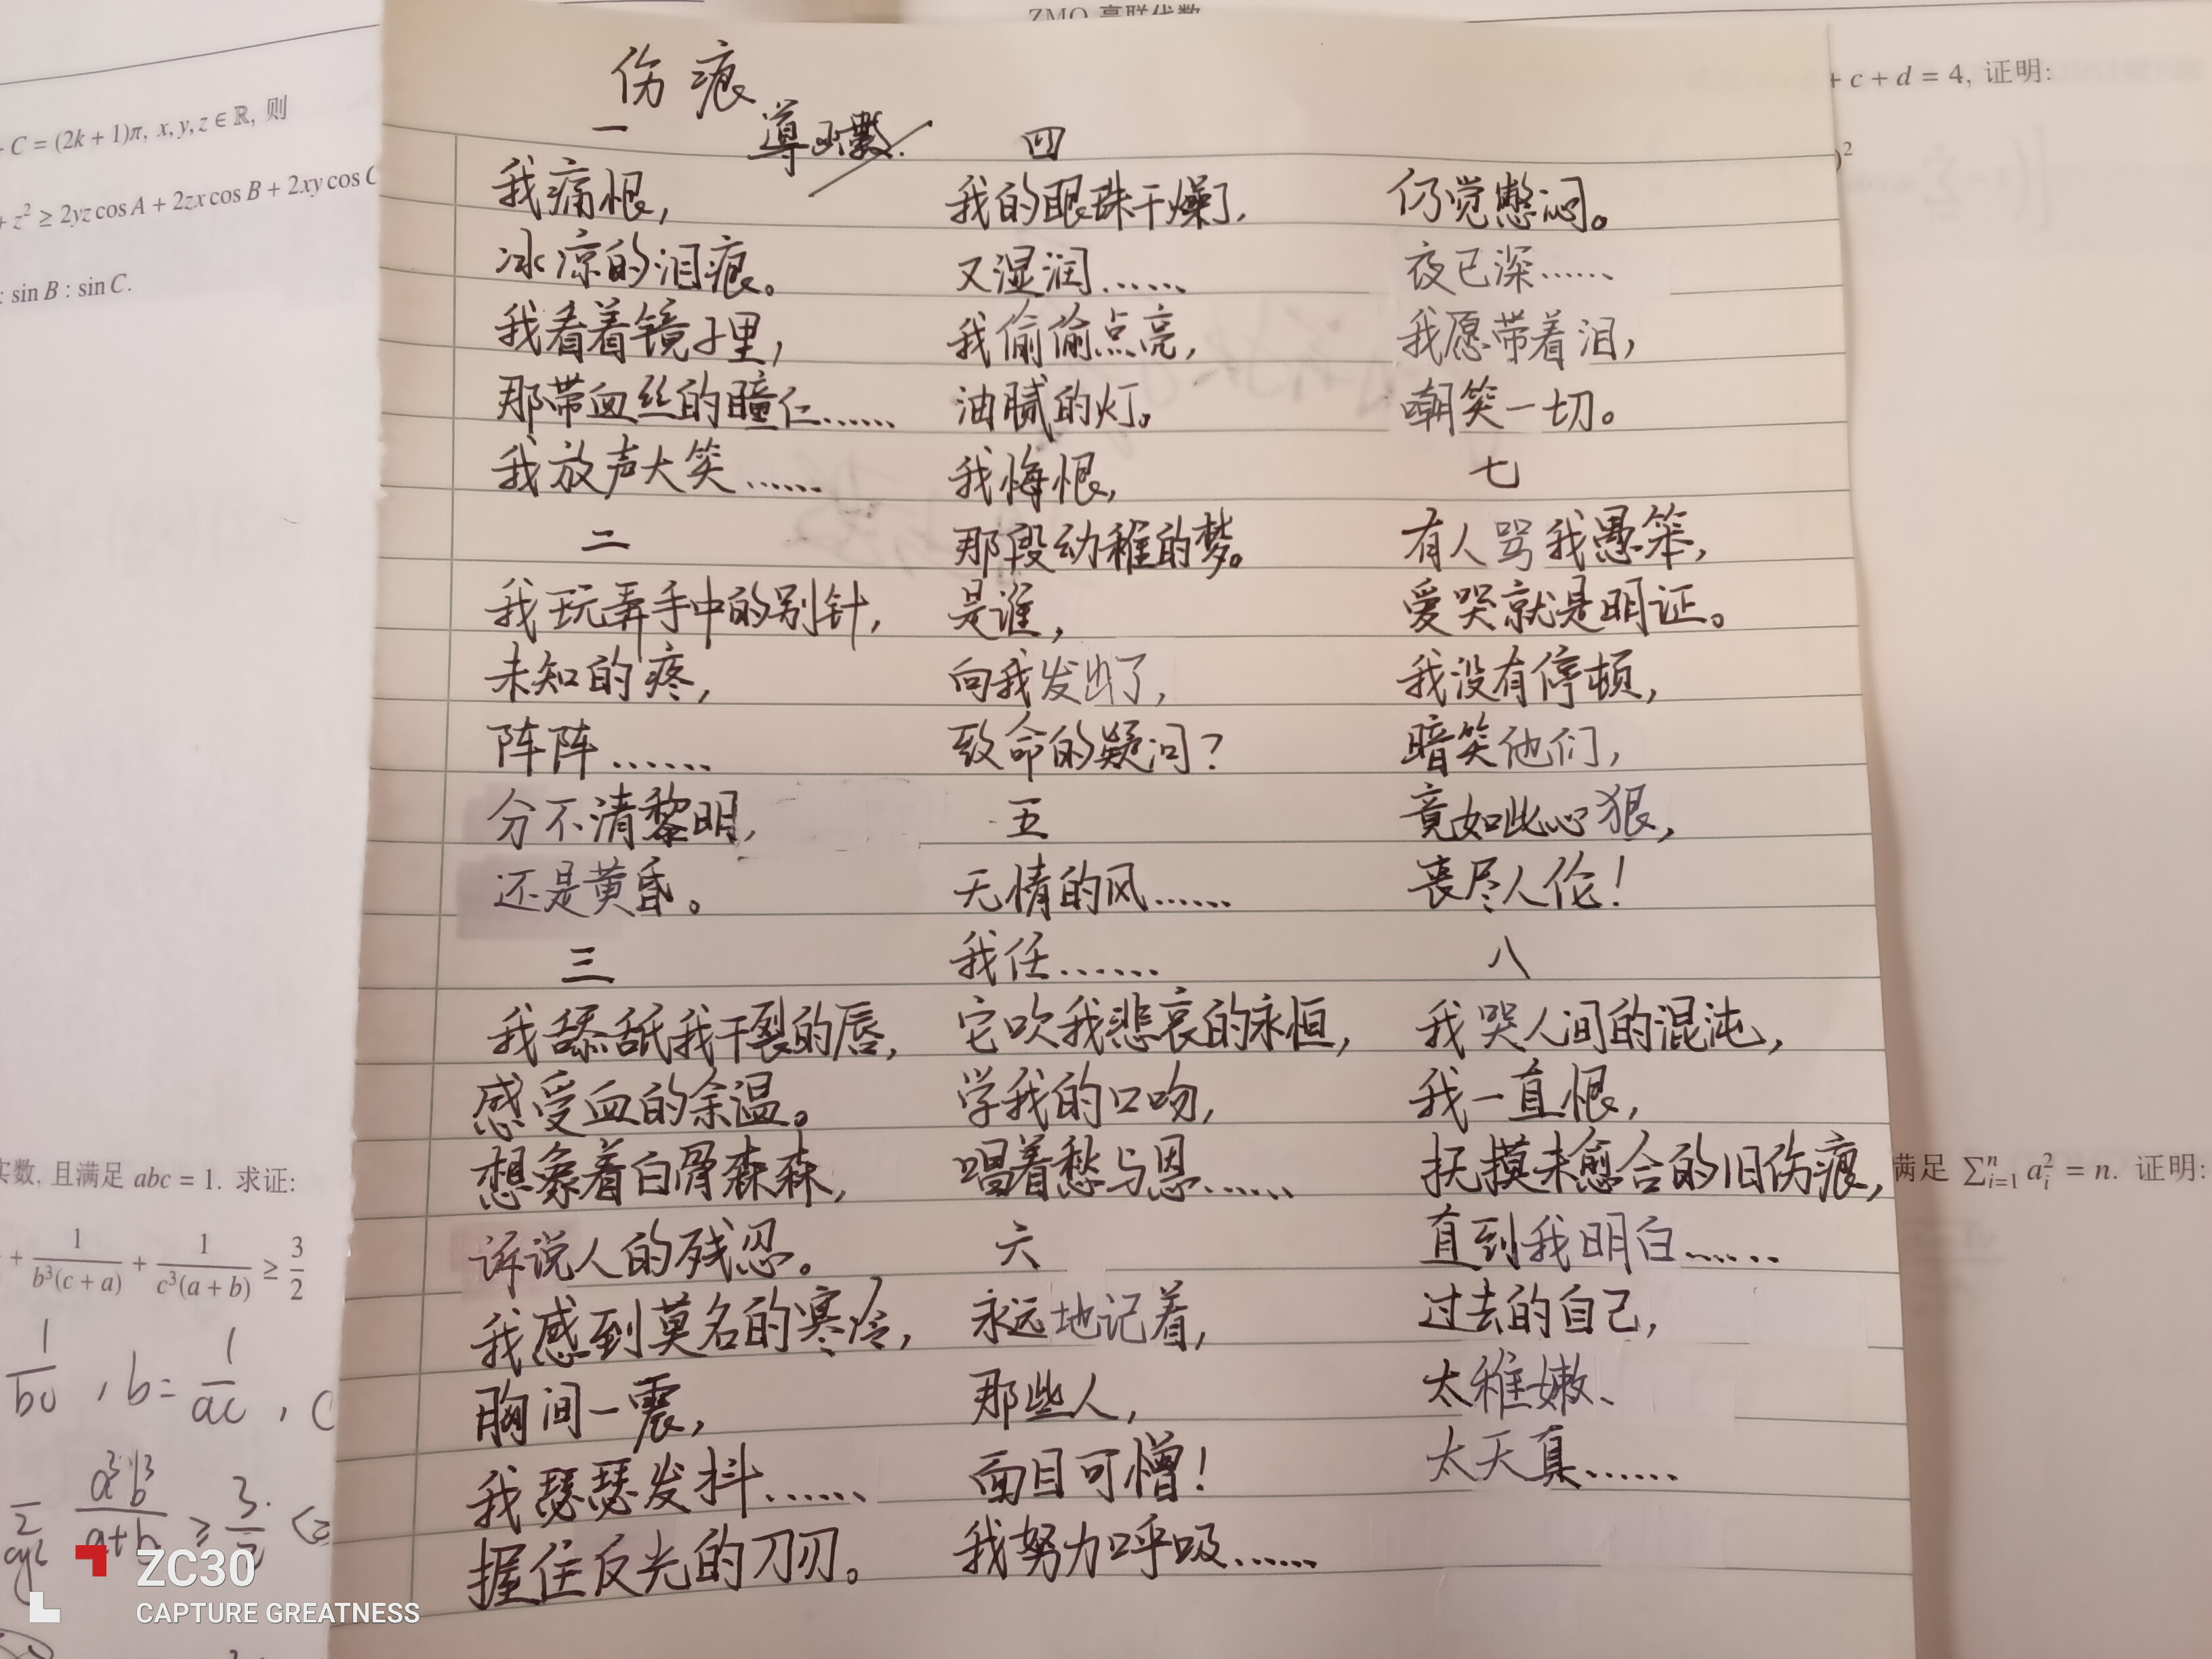 ZMO 高联代数
C = (2k + 1)π, x, y, z ∈ ℝ, 则
+ z² ≥ 2yz cos A + 2zx cos B + 2xy cos C
: sin B : sin C.
实数, 且满足 abc = 1. 求证:
+ 1/(b³(c + a)) + 1/(c³(a + b)) ≥ 3/2
, b = 1/ac , C
a³b³/(a+b) ≥ 3/2
伤痕
导函数.
一
我痛恨，
冰凉的泪痕。
我看着镜子里，
那带血丝的瞳仁……
我放声大笑……
二
我玩弄手中的别针，
未知的疼，
阵阵……
分不清黎明，
还是黄昏。
三
我舔舐我干裂的唇，
感受血的余温。
想象着白骨森森，
诉说人的残忍。
我感到莫名的寒冷，
胸间一震，
我瑟瑟发抖……
握住反光的刀刃。
四
我的眼珠干燥了，
又湿润……
我偷偷点亮，
油腻的灯。
我悔恨，
那段幼稚的梦。
是谁，
向我发出了，
致命的疑问？
五
无情的风……
我任……
它吹我悲哀的永恒，
学我的口吻，
唱着愁与恩……
六
永远地记着，
那些人，
面目可憎！
我努力呼吸……
仍觉憋闷。
夜已深……
我愿带着泪，
嘲笑一切。
七
有人骂我愚笨，
爱哭就是明证。
我没有停顿，
暗笑他们，
竟如此心狠，
丧尽人伦！
八
我哭人间的混沌，
我一直恨，
抚摸未愈合的旧伤痕，
直到我明白……
过去的自己，
太稚嫩、
太天真……
+ c + d = 4, 证明:
)²
满足 ∑ⁿᵢ₌₁ aᵢ² = n. 证明:
ZC30
CAPTURE GREATNESS